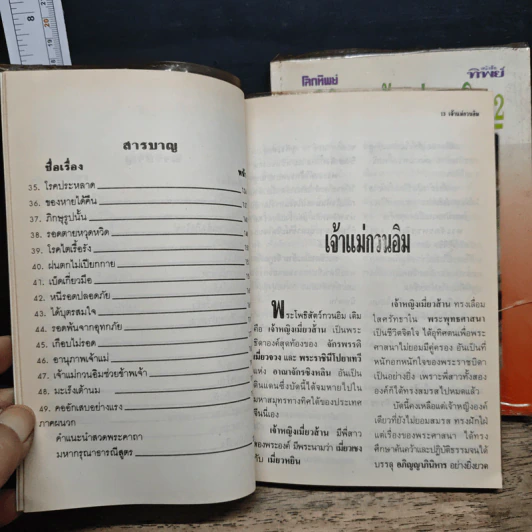 สารบาญ
ชื่อเรื่อง
35. โรคประหลาด
36. ของหายได้คืน
37. ภิกษุรูปนั้น
38. รอดตายหวุดหวิด
39. โรคไตเรื้อรัง
40. ฝนตกไม่เปียกกาย
41. เบ็ดเกี่ยวมือ
42. หนีรอดปลอดภัย
43. ได้บุตรสมใจ
44. รอดพ้นจากอุทกภัย
45. เกือบไม่รอด
46. อานุภาพเจ้าแม่
47. เจ้าแม่กวนอิมช่วยข้าพเจ้า
48. มะเร็งเต้านม
49. คออักเสบอย่างแรง
ภาคผนวก
คำแนะนำสวดพระคาถา
มหากรุณาธารณีสูตร
เจ้าแม่กวนอิม
เจ้าแม่กวนอิม
พระโพธิสัตว์กวนอิม เดิม
คือ เจ้าหญิงเมี่ยวส้าน เป็นพระ
ธิดาองค์สุดท้องของ จักรพรรดิ
เมี่ยวจวง และ พระราชินีโปยาหวี
แห่ง อาณาจักรซิงหลิน อันเป็น
ดินแดนซึ่งบัดนี้ได้จมหายไปใน
มหาสมุทรทางทิศใต้ของประเทศ
จีนนี่เอง
เจ้าหญิงเมี่ยวส้าน มีพี่สาว
องพระองค์ มีพระนามว่า
กับ เมี่ยวหยิน
เจ้าหญิงเมี่ยวส้าน ทรงเลื่อม
ใสศรัทธาใน พระพุทธศาสนา
เป็นชีวิตจิตใจ ได้อุทิศตนเพื่อพระ
ศาสนาไม่ยอมมีคู่ครอง อันเป็นที่
หนักอกหนักใจของพระราชบิดา
เป็นอย่างยิ่ง เพราะพี่สาวทั้งสอง
องค์ก็ได้ทรงสมรสไปหมดแล้ว
บัดนี้คงเหลือแต่เจ้าหญิงองค์
เดียวที่ยังไม่ยอมสมรส ทรงฝักใฝ่
แต่เรื่องของพระศาสนา ได้ทรง
ศึกษาค้นคว้าและปฏิบัติธรรมจนได้
บรรลุ อภิญญาภินิหาร อย่างยิ่งยวด
โลกทิพย์
ทิพย์
2
8